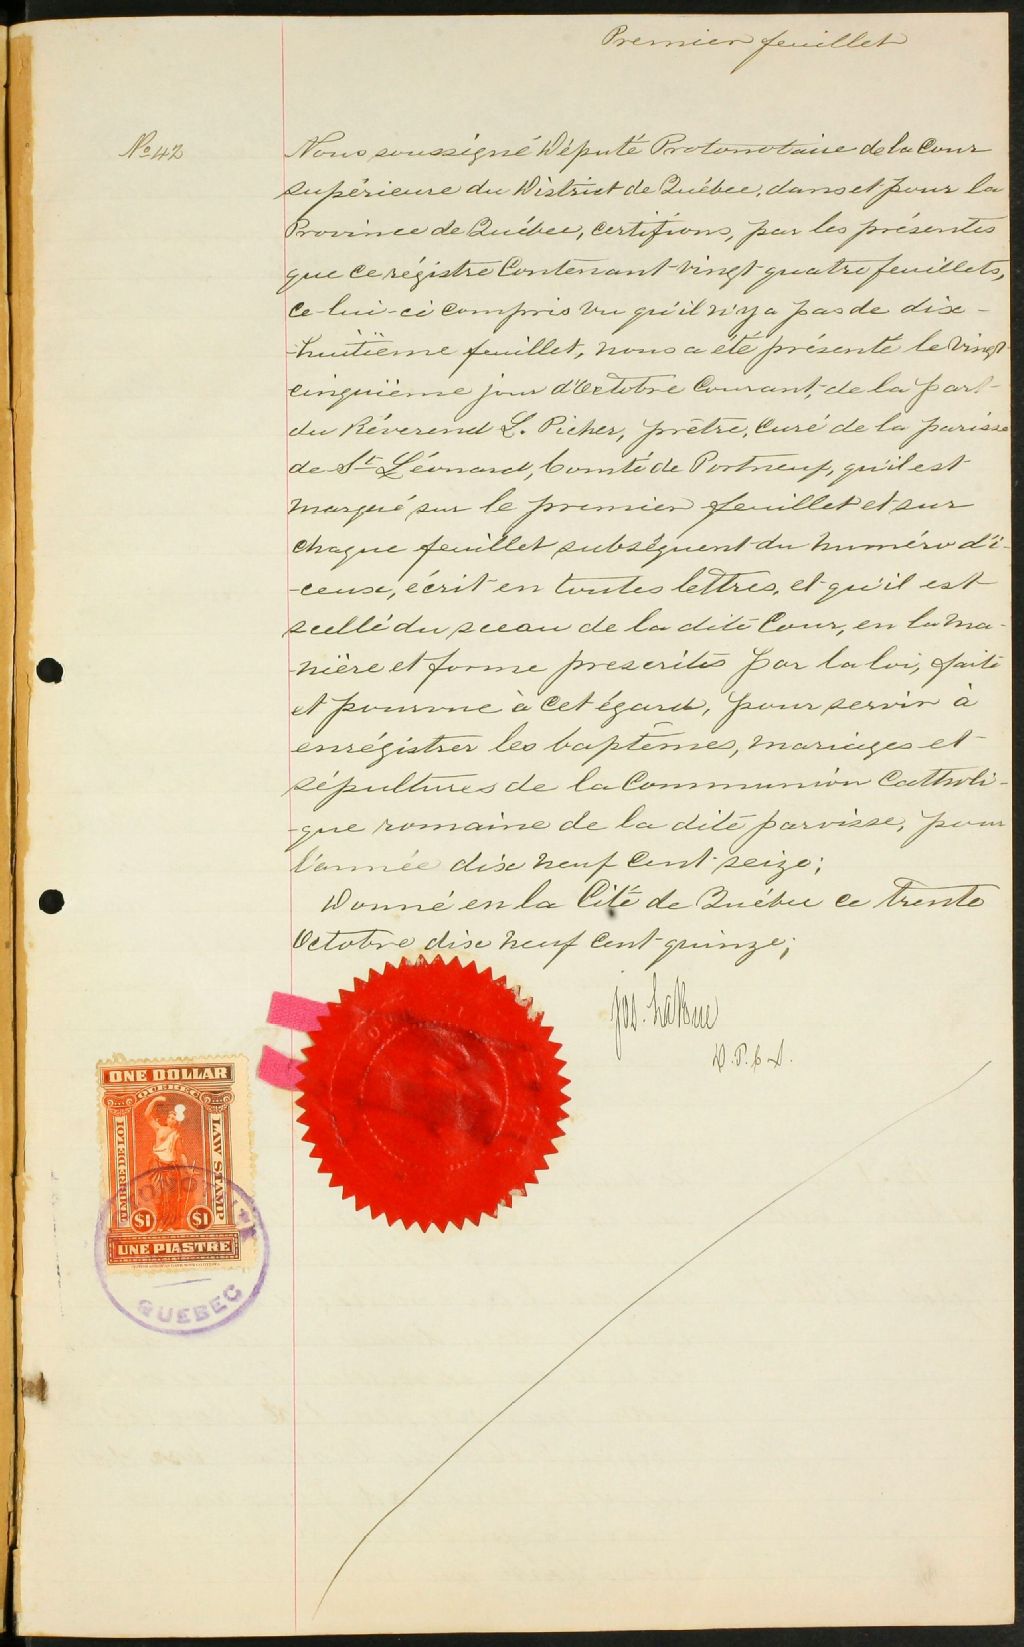 Premier feuillet
No 42
Nous soussigné Député Protonotaire de la Cour
supérieure du District de Québec, dans et pour la
Province de Québec, certifions, par les présentes
que ce régistre Contenant vingt-quatre feuillets,
ce-lui-ci compris vu qu'il n'y a pas de dix-
-huitième feuillet, nous a été présenté le vingt
cinquième jour d'Octobre Courant, de la part
du Révérend L. Picher, prêtre, Curé de la paroisse
de St Léonard, Comté de Portneuf, qu'il est
marqué sur le premier feuillet et sur
chaque feuillet subséquent du numéro d'i-
-ceux, écrit en toutes lettres, et qu'il est
scellé du sceau de la dite Cour, en la ma-
-nière et forme prescrites par la loi, faite
et pourvue à cet égard, pour servir à
enrégistrer les baptêmes, mariages et
sépultures de la Communion Catholi-
-que romaine de la dite paroisse, pour
l'année dix neuf Cent seize;
Donné en la Cité de Québec ce trente
Octobre dix neuf Cent quinze;
Jos. LaRue
D.P.C.S.
ONE DOLLAR
QUEBEC
TIMBRE DE LOI
LAW STAMP
$1 $1
UNE PIASTRE
QUEBEC